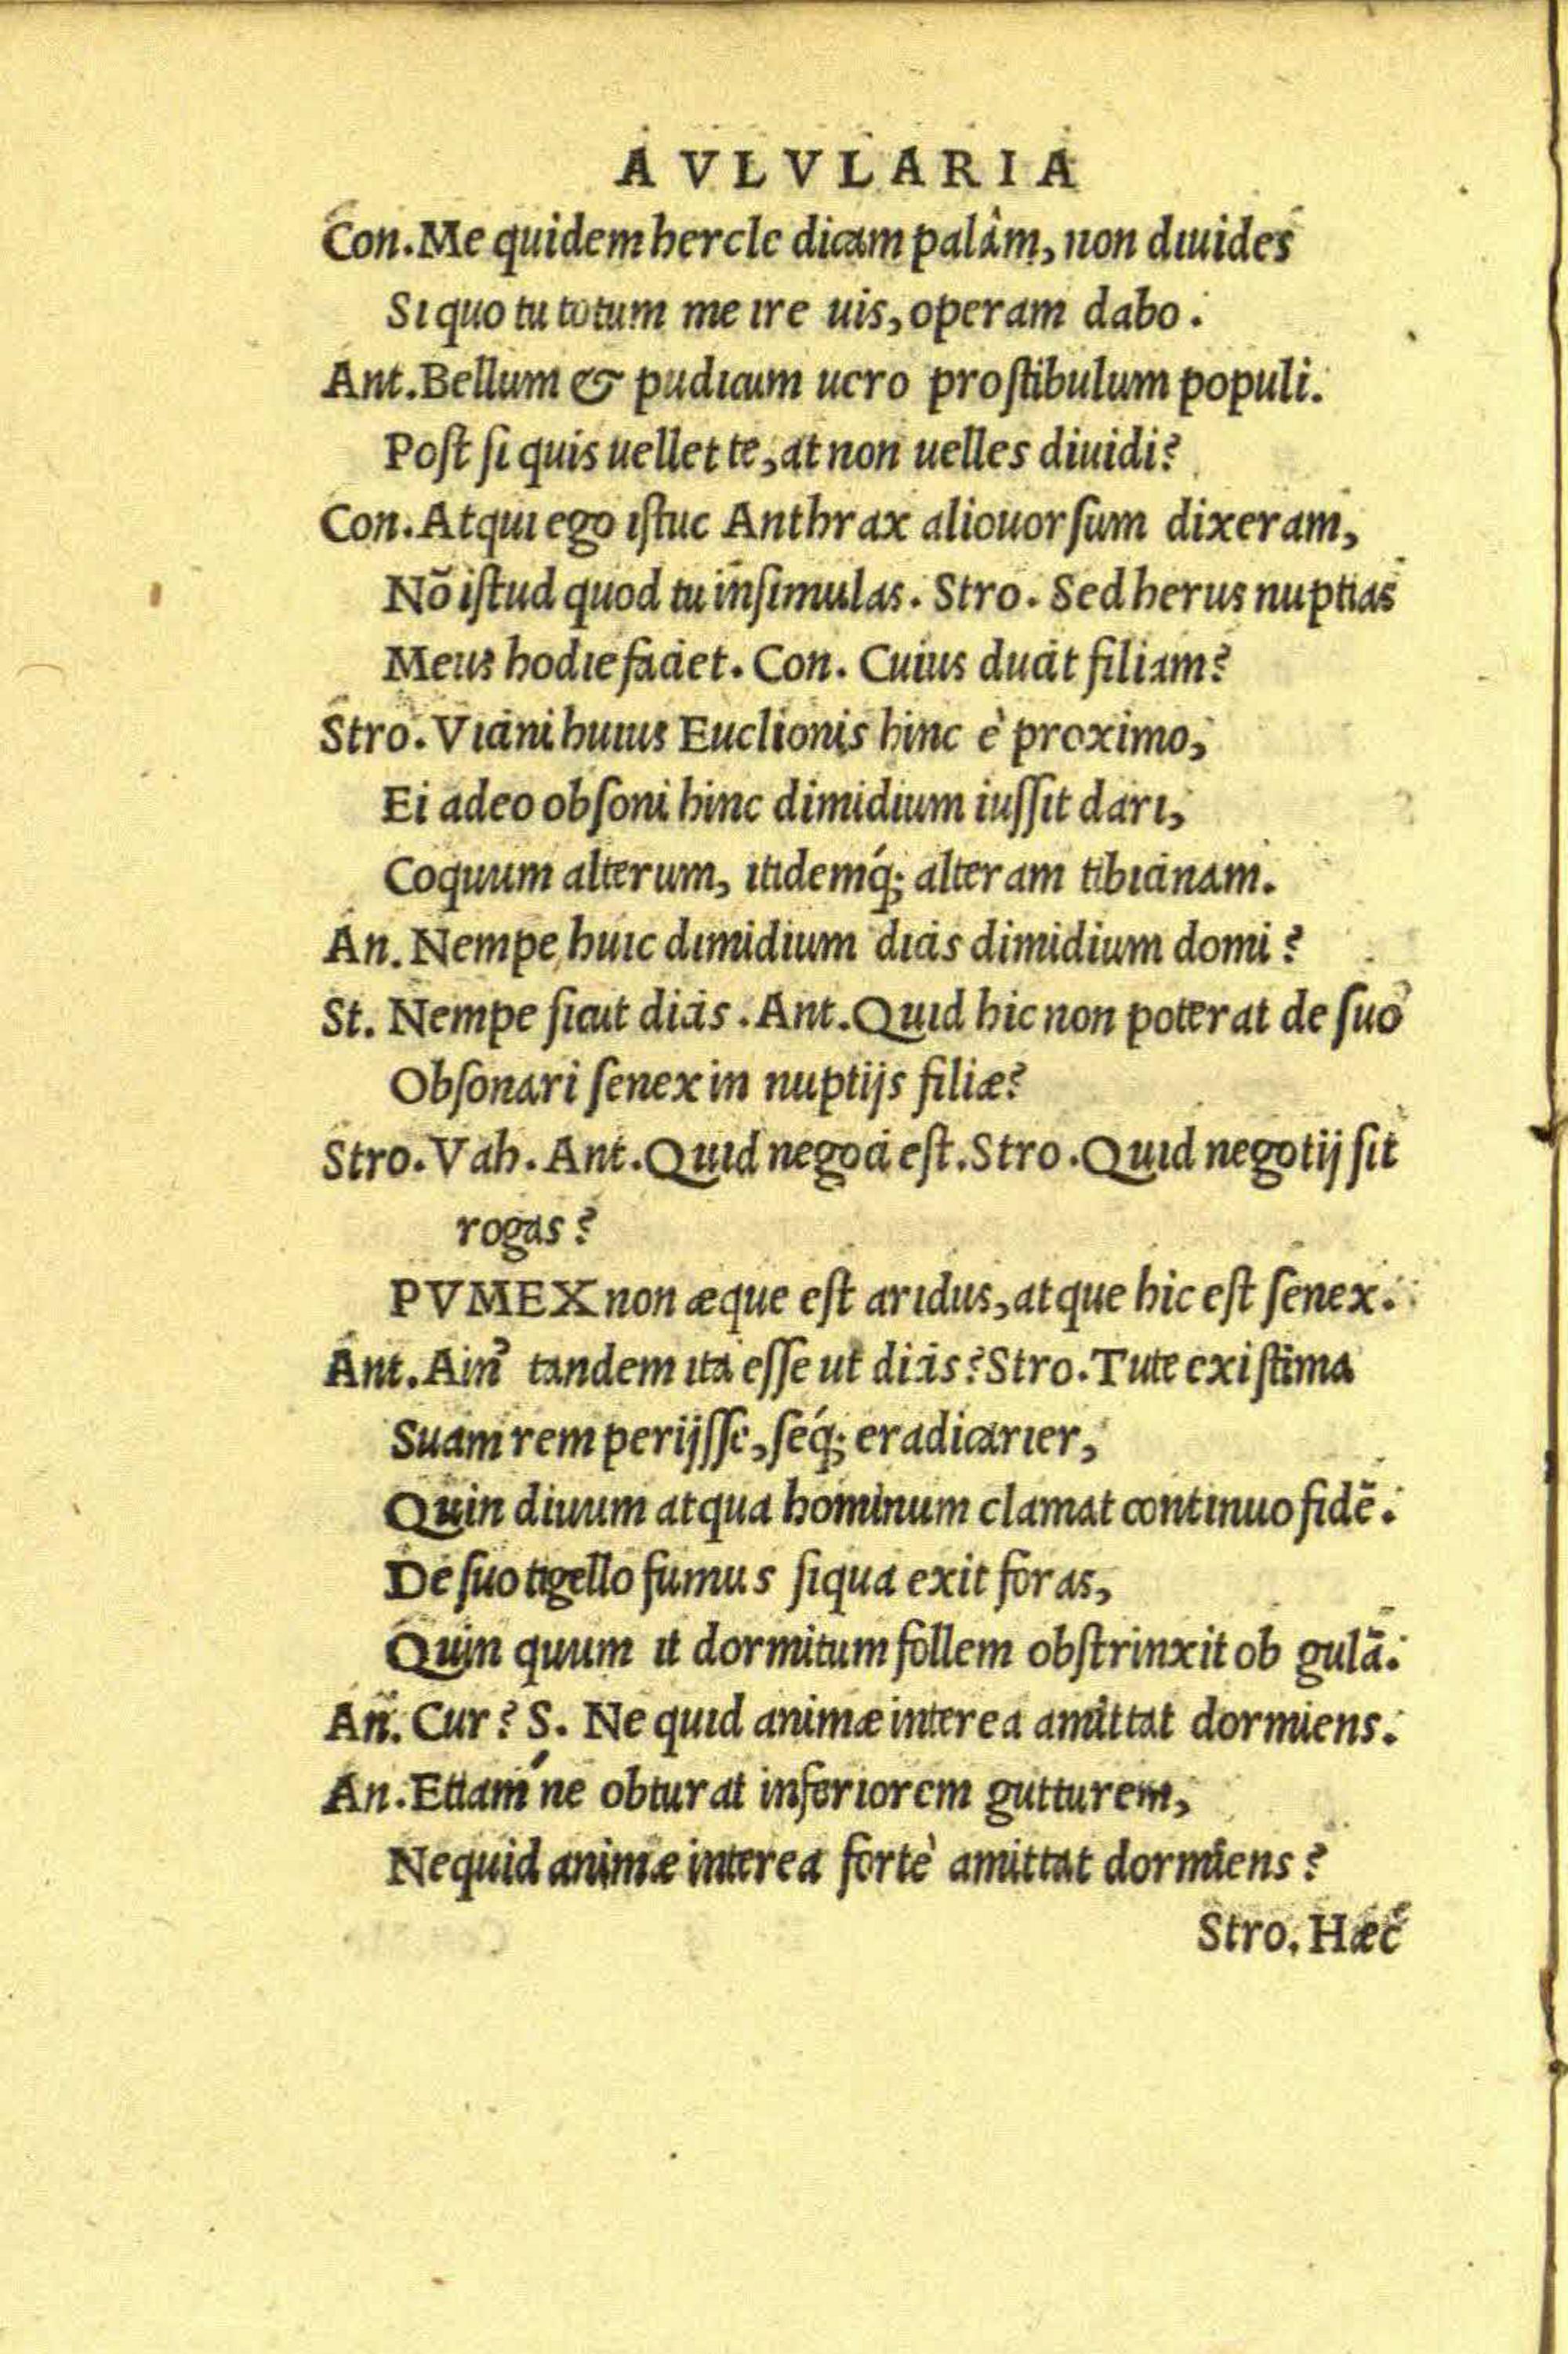 AVLVLARIA
Con. Me quidem hercle dicam palàm, non diuides
Si quo tu totum me ire uis, operam dabo.
Ant. Bellum & pudicum uero proſtibulum populi.
Poſt ſi quis uellet te, at non uelles diuidi?
Con. Atqui ego iſtuc Anthrax aliouorſum dixeram,
Nō iſtud quod tu inſimulas. Stro. Sed herus nuptias
Meus hodie faciet. Con. Cuius ducit filiam?
Stro. Vicini huius Euclionis hinc è proximo,
Ei adeo obſoni hinc dimidium iuſſit dari,
Coquum alterum, itidemq́; alteram tibicinam.
An. Nempe huic dimidium dicis dimidium domi?
St. Nempe ſicut dicis. Ant. Quid hic non poterat de ſuo
Obſonari ſenex in nuptijs filiæ?
Stro. Vah. Ant. Quid negoci eſt. Stro. Quid negotij ſit
rogas?
PVMEX non æque eſt aridus, atque hic eſt ſenex.
Ant. Ain' tandem ita eſſe ut dicis? Stro. Tute exiſtima
Suam rem perijſſe, ſeq́; eradicarier,
Quin diuum atqua hominum clamat continuo fidē.
De ſuo tigello fumus ſiqua exit foras,
Quin quum it dormitum follem obſtrinxit ob gulā.
An. Cur? S. Ne quid animæ interea amittat dormiens.
An. Etiam'ne obturat inferiorem gutturem,
Nequid animæ interea fortè amittat dormiens?
Stro. Hæc